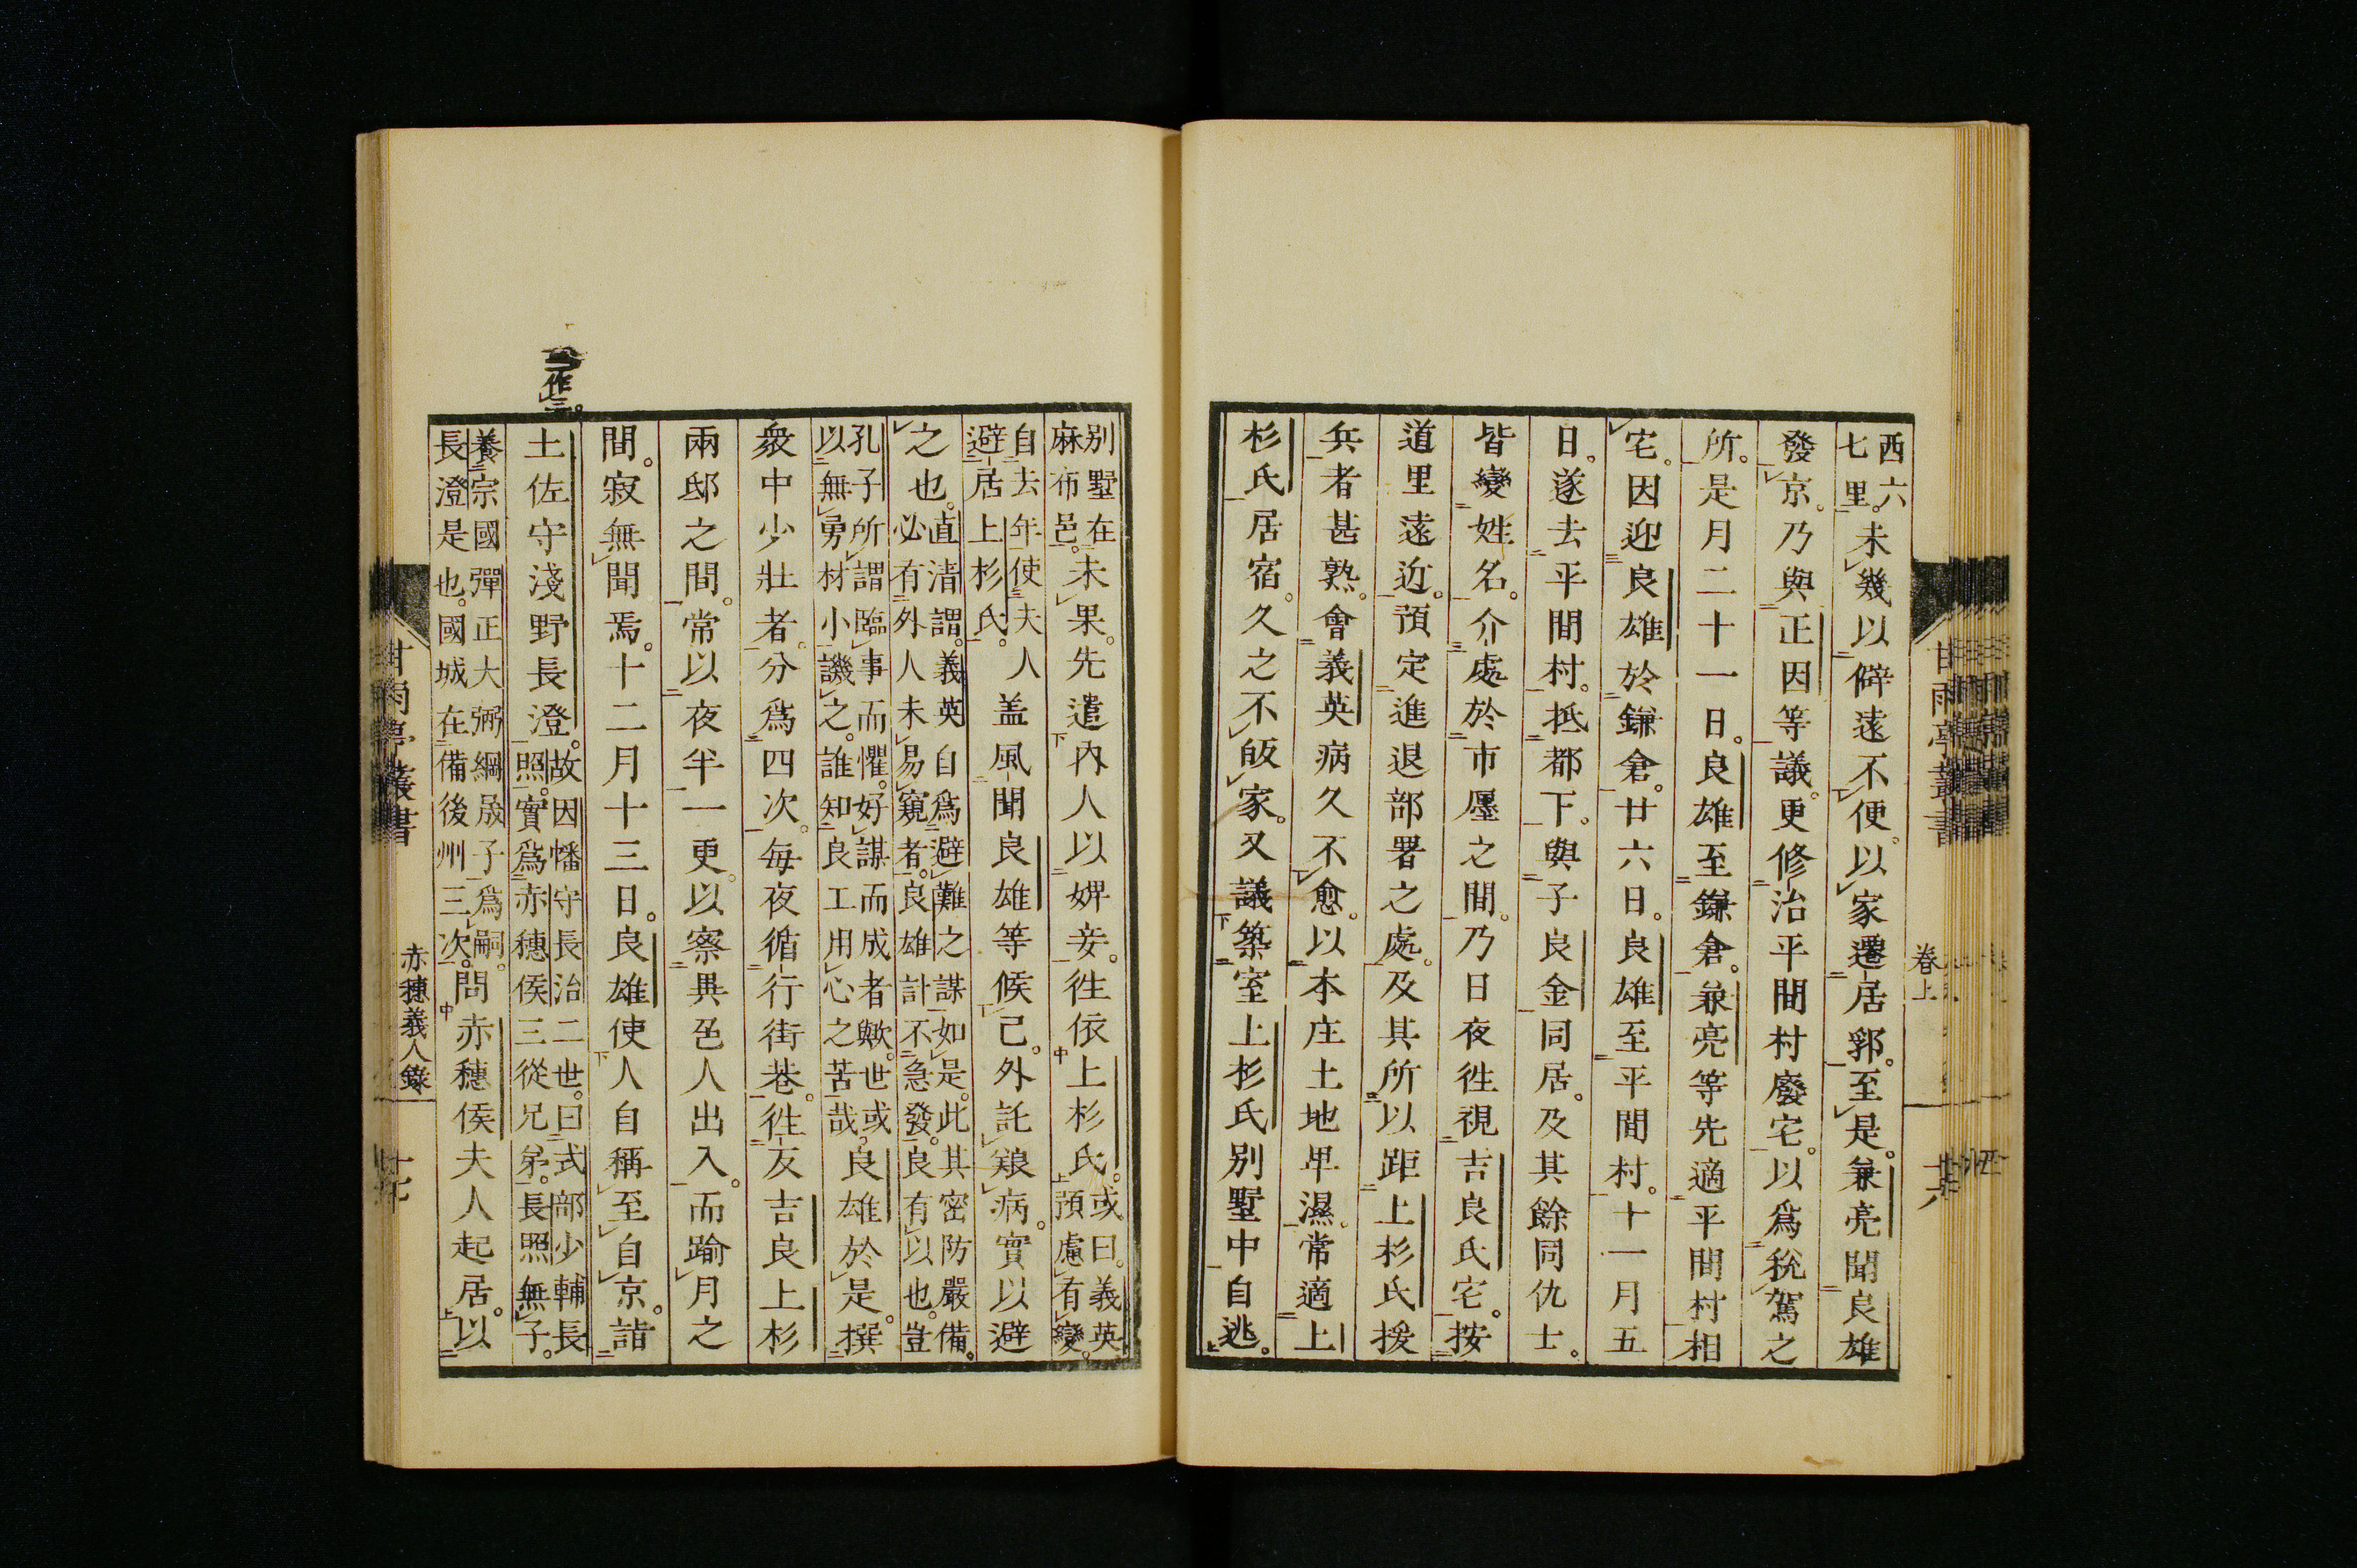 西六
七里。未幾以僻遠不便。以家遷居郛。至是。兼亮聞良雄
發京。乃與正因等議。更修治平間村廢宅。以爲稅駕之
所。是月二十一日。良雄至鎌倉。兼亮等先適平間村相
宅。因迎良雄於鎌倉。廿六日。良雄至平間村。十一月五
日。遂去平間村。抵都下。與子良金同居。及其餘同仇士。
皆變姓名。介處於市廛之間。乃日夜徃視吉良氏宅。按
道里遠近。預定進退部署之處。及其所以距上杉氏援
兵者甚熟。會義英病久不愈。以本庄土地卑濕。常適上
杉氏居宿。久之不皈家。又議築室上杉氏別墅中自逃。
別墅在
麻布邑。未果。先遣內人以婢妾。徃依上杉氏。或曰。義英
預慮有變。
自去年使夫人
避居上杉氏。盖風聞良雄等候己。外託㱢病。實以避
之也。直淸謂。義英自爲避難之謀如是。此其密防嚴備。
必有外人未易窺者。良雄計不急發。良有以也。豈
孔子所謂臨事而懼。好謀而成者歟。世或
以無勇材小譏之。誰知良工用心之苦哉。良雄於是。撰
衆中少壯者。分爲四次。每夜循行街巷。徃反吉良上杉
兩邸之間。常以夜半一更。以察異邑人出入。而踰月之
間。寂無聞焉。十二月十三日。良雄使人自稱至自京。詣
土佐守淺野長澄。故因幡守長治二世。曰式部少輔長
照。實爲赤穗侯三從兄弟。長照無子。
養宗國彈正大弼綱晟子爲嗣。
長澄是也。國城在備後州三次。問赤穗侯夫人起居。以
作三。
甘雨亭叢書
卷上
十六
甘雨亭叢書
赤穗義人錄
十七